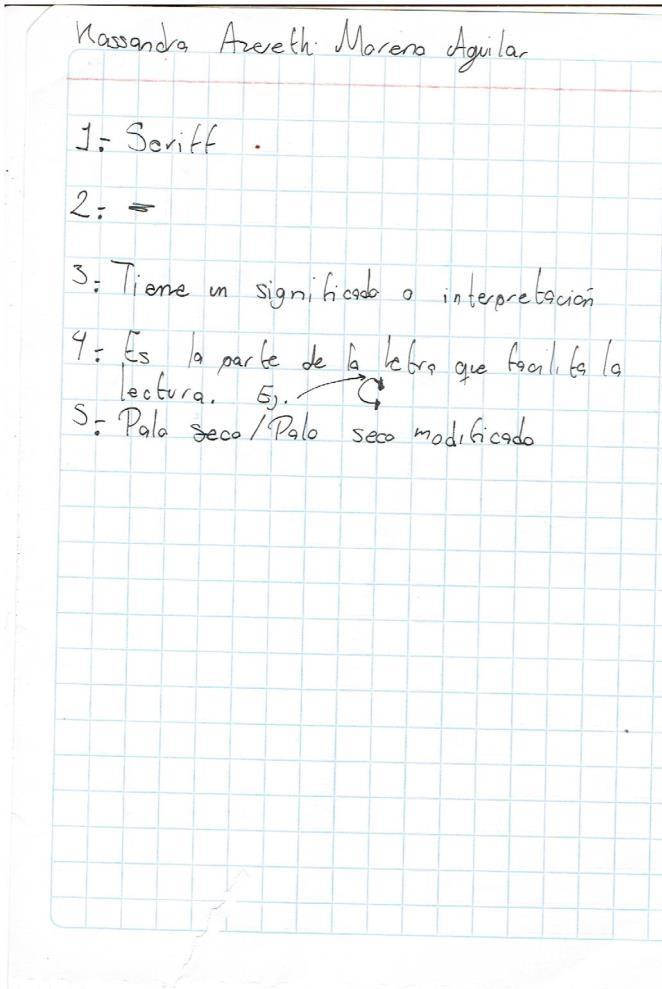 Kassandra Azereth Moreno Aguilar
1:- Seriff .
2:- =
3:- Tiene un significado o interpretación
4:- Es la parte de la letra que facilita la
lectura. Ej. C
5:- Palo seco / Palo seco modificado